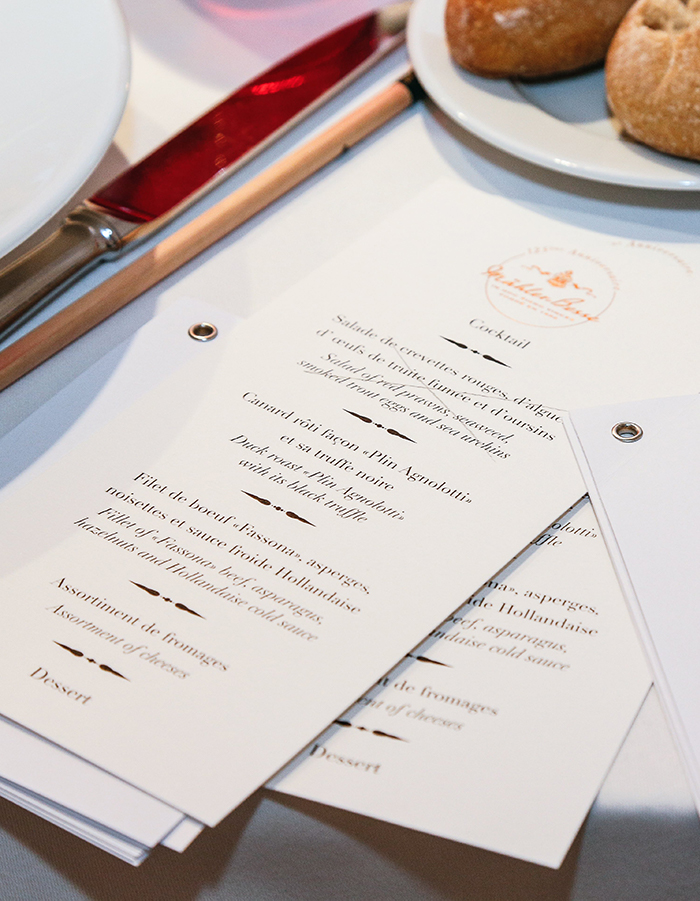 Anniversaire
Mühlen Berg
Cocktail
Salade de crevettes rouges, d'algue
d' œufs de truite fumée et d'oursins
Salad of red prawns, seaweed,
smoked trout eggs and sea urchins
Canard rôti façon «Plin Agnolotti»
et sa truffe noire
Duck roast «Plin Agnolotti»
with its black truffle
Filet de boeuf «Fassona», asperges,
noisettes et sauce froide Hollandaise
Fillet of «Fassona» beef, asparagus,
hazelnuts and Hollandaise cold sauce
Assortiment de fromages
Assortment of cheeses
Dessert
gnolotti»
uffle
ona», asperges,
oide Hollandaise
beef, asparagus,
daise cold sauce
t de fromages
ent of cheeses
Dessert